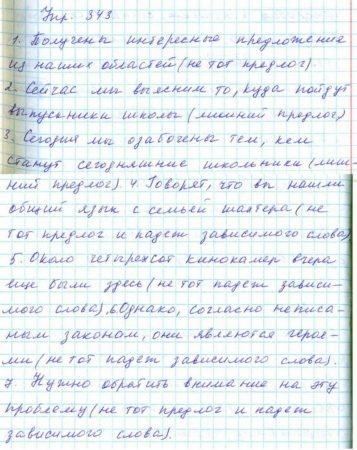 Упр. 343
1. Получены интересные предложение
из наших областей (не тот предлог).
2. Сейчас мы выясним то, куда пойдут
выпускники школы (лишний предлог)
3. Сегодня мы озабочены тем, кем
станут сегодняшние школьники (лиш-
ний предлог). 4. Говорят, что вы нашли
общий язык с семьей шахтера (не
тот предлог и падеж зависимого слова)
5. Около четырехсот кинокамер вчера
еще были здесь (не тот падеж зависи-
мого слова). 6. Однако, согласно неписа-
ным законом, они являются героя-
ми (не тот падеж зависимого слова).
7. Нужно обратить внимание на эту
проблему (не тот предлог и падеж
зависимого слова).